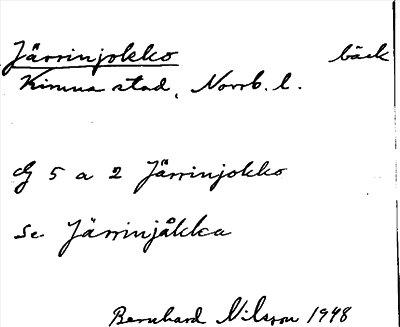 Järrinjokko bäck
Kiruna stad, Norrb. l.
G 5 a 2 Järrinjokko
Se Järrinjåkka
Bernhard Nilsson 1948